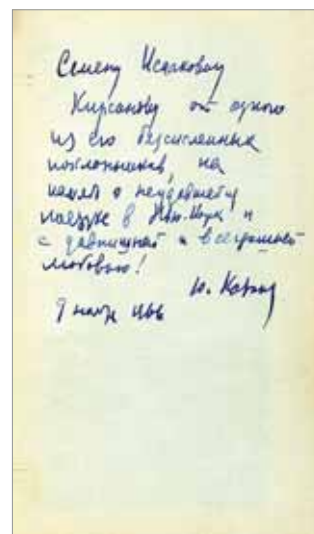 Семену Исааковичу
Кирсанову от одного
из его бесчисленных
поклонников, на
память о неудавшейся
поездке в Нью-Йорк и
с давнишней и всегдашней
любовью!
9 1966